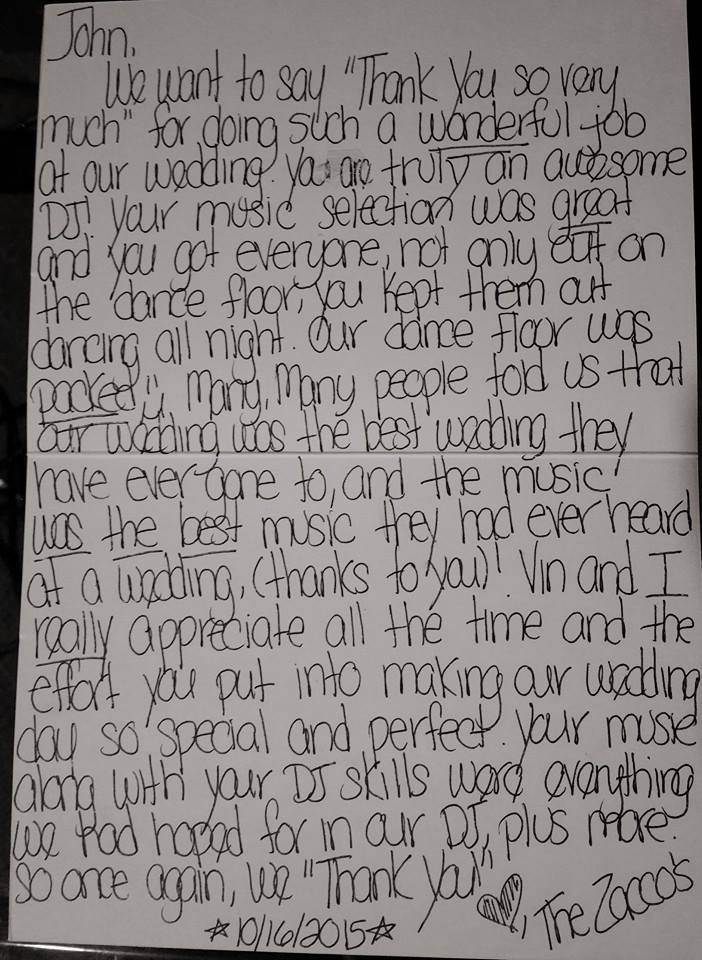 John,
We want to say "Thank You so very
much" for doing such a wonderful job
at our wedding. You are truly an awesome
DJ! Your music selection was great
and you got everyone, not only out on
the dance floor, you kept them out
dancing all night. Our dance floor was
packed!! Many, Many people told us that
our wedding was the best wedding they
have ever gone to, and the music
was the best music they had ever heard
at a wedding, (thanks to you)! Vin and I
really appreciate all the time and the
effort you put into making our wedding
day so special and perfect. Your music
along with your DJ skills were everything
we had hoped for in our DJ, plus more.
So once again, we "Thank You!"
♥, The Zacco's
☆10/16/2015☆